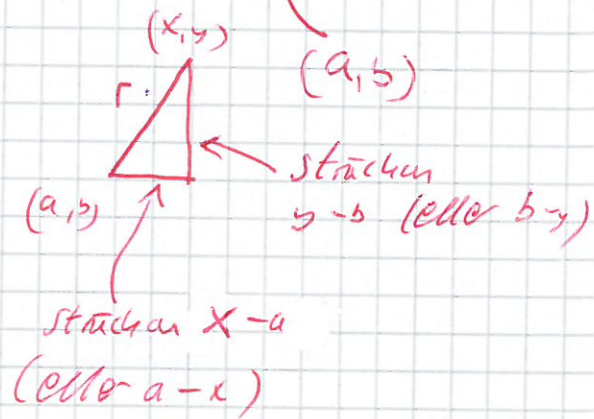 (x,y)
(a,b)
r
(a,b)
sträckan
y-b (eller b-y)
sträckan x-a
(eller a-x)